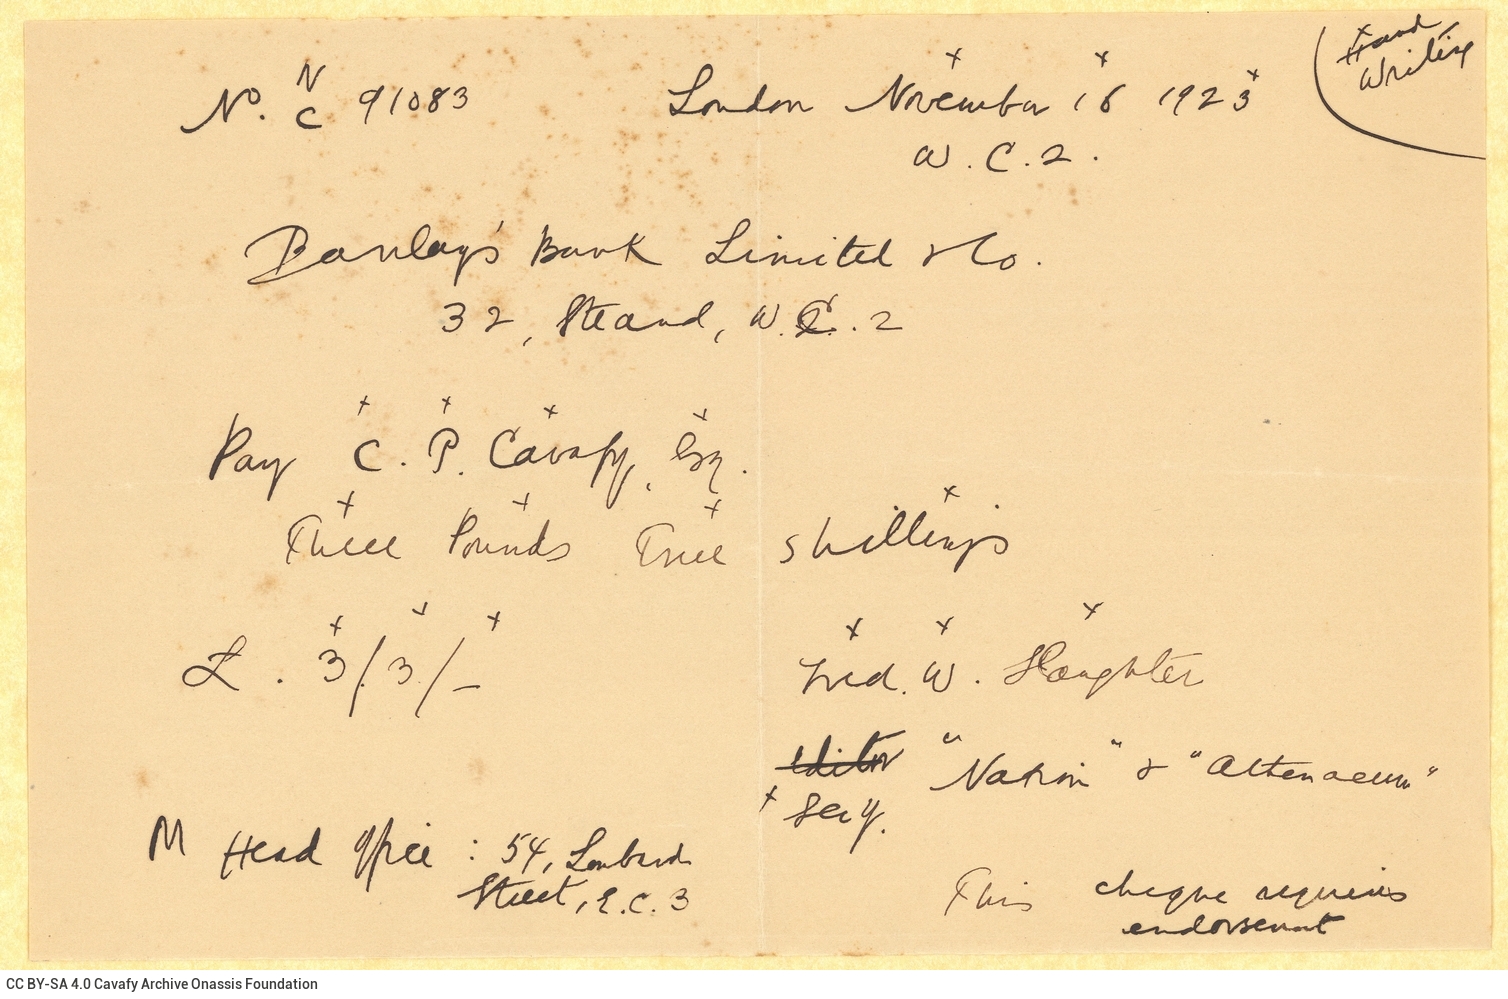 Hand
Writing
No. N/C 91083 London November 16 1923
W.C.2.
Barclay's Bank Limited & Co.
32, Strand, W.C.2
Pay C. P. Cavafy, Esq.
Three Pounds Three shillings
£. 3/3/–
Fred. W. Slaughter
editor "Nation" & "Athenaeum"
Secy.
M Head Office : 54, Lombard
Street, E.C.3
This cheque requires
endorsement
CC BY-SA 4.0 Cavafy Archive Onassis Foundation